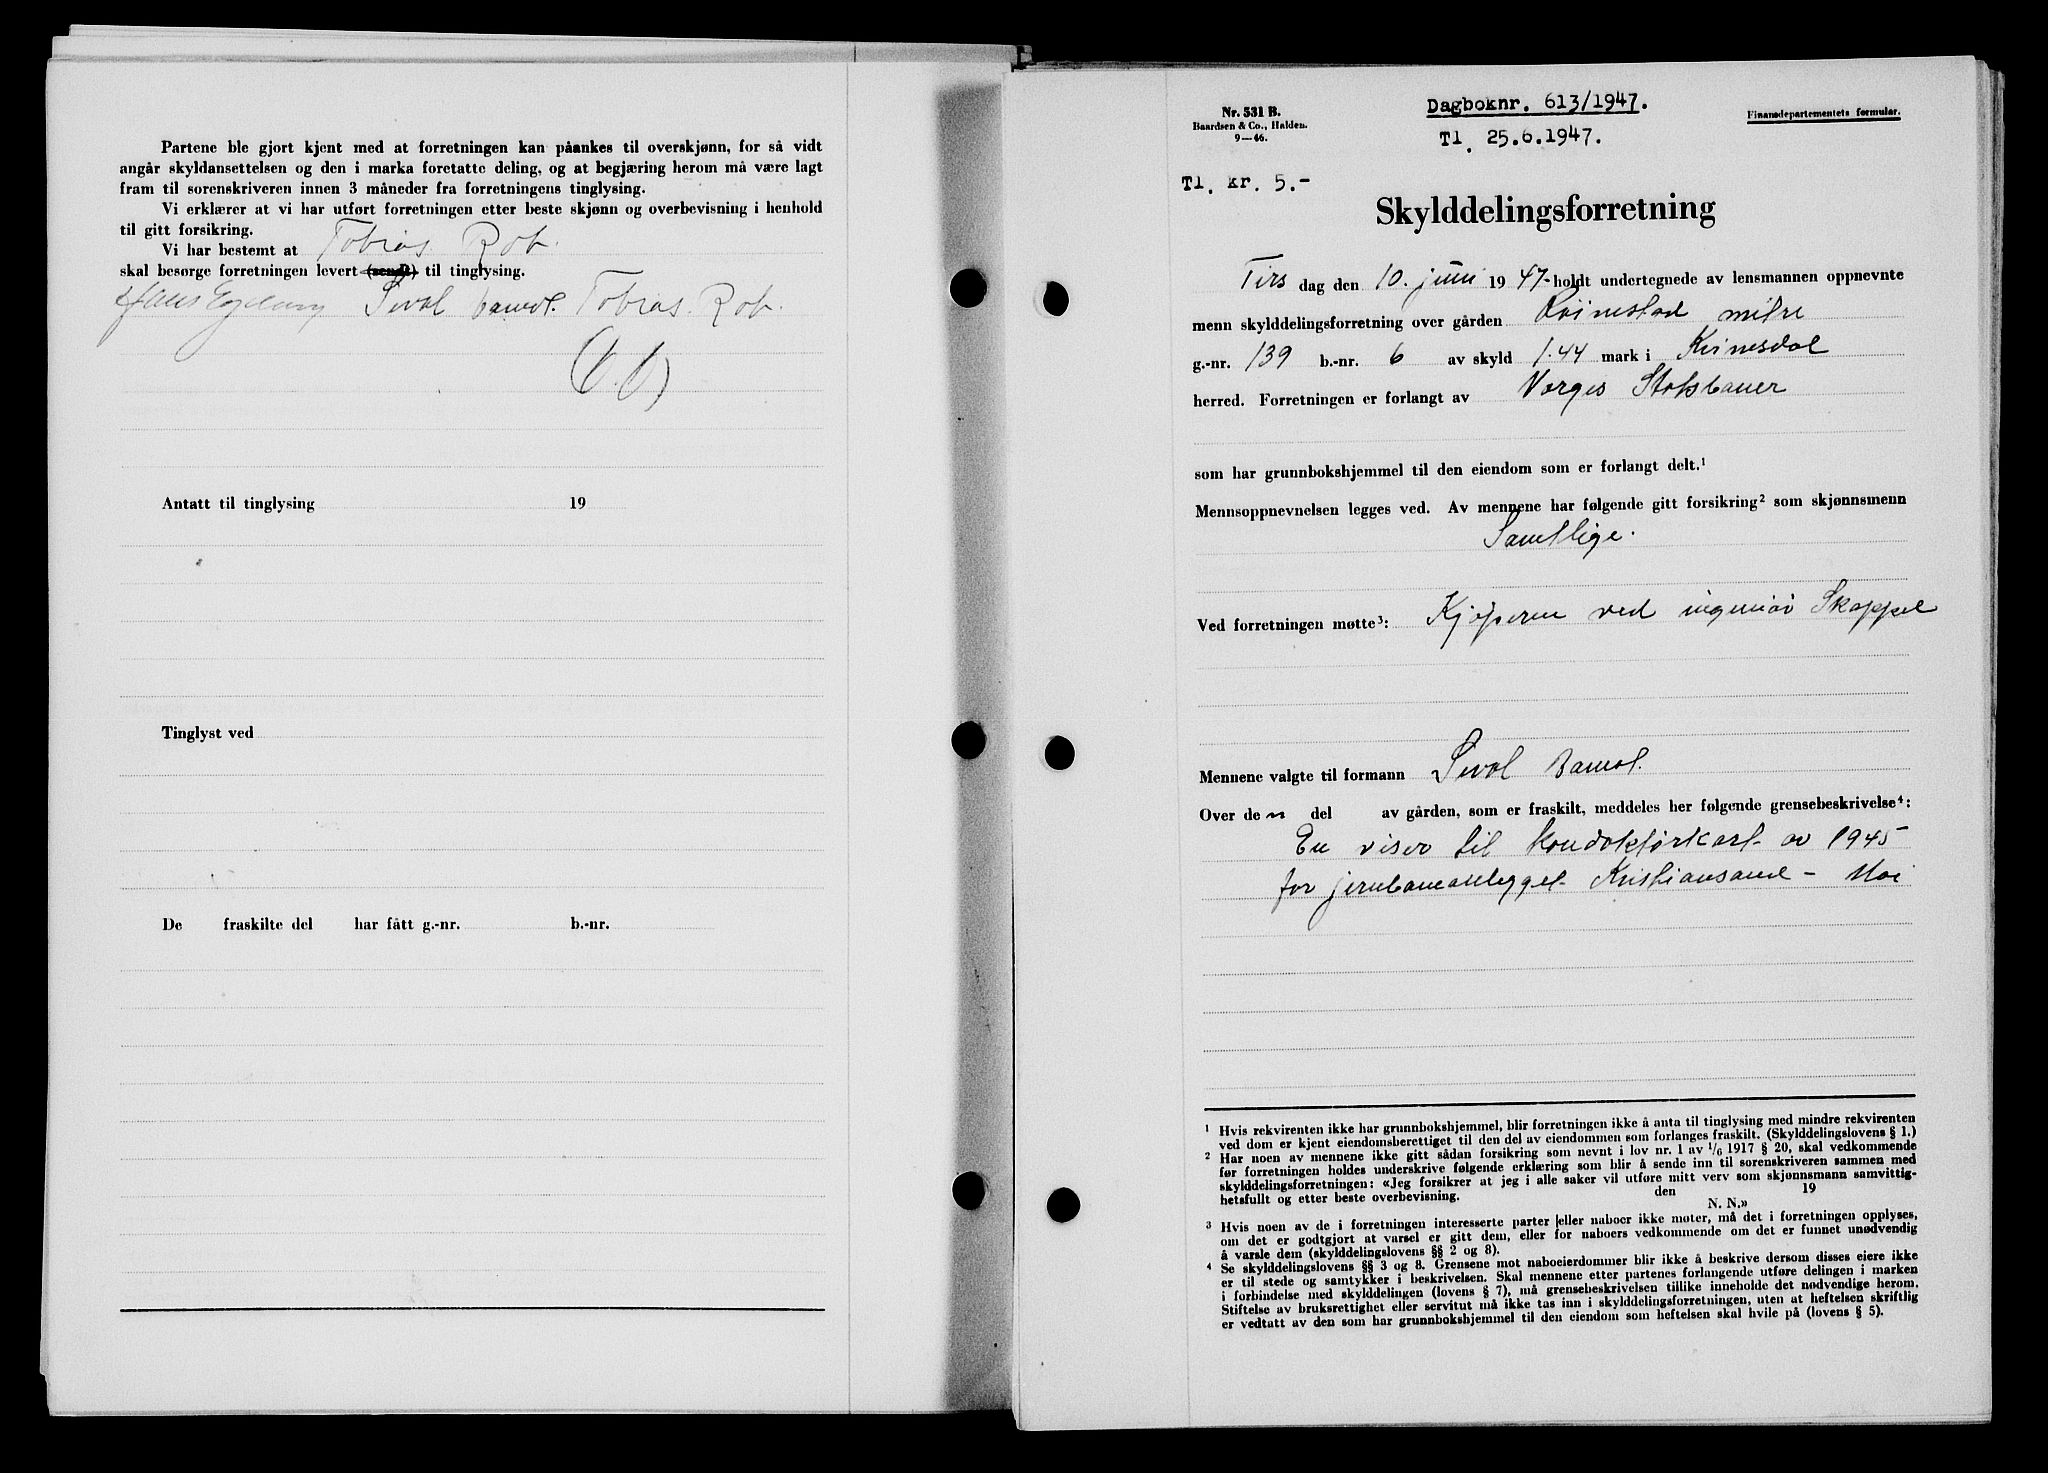 Partene ble gjort kjent med at forretningen kan påankes til overskjønn, for så vidt
angår skyldansettelsen og den i marka foretatte deling, og at begjæring herom må være lagt
fram til sorenskriveren innen 3 måneder fra forretningens tinglysing.
Vi erklærer at vi har utført forretningen etter beste skjønn og overbevisning i henhold
til gitt forsikring.
Vi har bestemt at Tobias Rob.
skal besørge forretningen levert (sendt) til tinglysing.
Hans Egeland Sival Tobias. Rob.
Antatt til tinglysing 19
Tinglyst ved
De fraskilte del har fått g.-nr. b.-nr.
Nr. 531 B.
Baardsen & Co., Halden.
9—46.
Dagboknr. 613/1947.
Tl. 25.6.1947.
Finansdepartementets formular.
Tl. kr. 5.-
Skylddelingsforretning
Tirs dag den 10. juni 1947 holdt undertegnede av lensmannen oppnevnte
menn skylddelingsforretning over gården Røinestad mitre
g.-nr. 139 b.-nr. 6 av skyld 1.44 mark i Kvinesdal
herred. Forretningen er forlangt av Norges Statsbaner
som har grunnbokshjemmel til den eiendom som er forlangt delt.¹
Mennsoppnevnelsen legges ved. Av mennene har følgende gitt forsikring² som skjønnsmenn
Samtlige.
Ved forretningen møtte³: Kjøperen ved ingeniør Skappel
Mennene valgte til formann Sival
Over de n del av gården, som er fraskilt, meddeles her følgende grensebeskrivelse⁴:
En viser til konduktørkart av 1945
for jernbaneanlegget Kristiansand - Moi
¹ Hvis rekvirenten ikke har grunnbokshjemmel, blir forretningen ikke å anta til tinglysing med mindre rekvirenten
ved dom er kjent eiendomsberettiget til den del av eiendommen som forlanges fraskilt. (Skylddelingslovens § 1.)
² Har noen av mennene ikke gitt sådan forsikring som nevnt i lov nr. 1 av 1/6 1917 § 20, skal vedkommende
før forretningen holdes underskrive følgende erklæring som blir å sende inn til sorenskriveren sammen med
skylddelingsforretningen: «Jeg forsikrer at jeg i alle saker vil utføre mitt verv som skjønnsmann samvittig-
hetsfullt og etter beste overbevisning. den 19
N. N.»
³ Hvis noen av de i forretningen interesserte parter eller naboer ikke møter, må det i forretningen opplyses,
om det er godtgjort at varsel er gitt dem, eller for naboers vedkommende om det er funnet unødvendig
å varsle dem (skylddelingslovens §§ 2 og 8).
⁴ Se skylddelingslovens §§ 3 og 8. Grensene mot naboeierdommer blir ikke å beskrive dersom disses eiere ikke
er til stede og samtykker i beskrivelsen. Skal mennene etter partenes forlangende utføre delingen i marken
i forbindelse med skylddelingen (lovens § 7), må grensebeskrivelsen tillike inneholde det nødvendige herom.
Stiftelse av bruksrettighet eller servitut må ikke tas inn i skylddelingsforretningen, uten at heftelsen skriftlig
er vedtatt av den som har grunnbokshjemmel til den eiendom som heftelsen skal hvile på (lovens § 5).